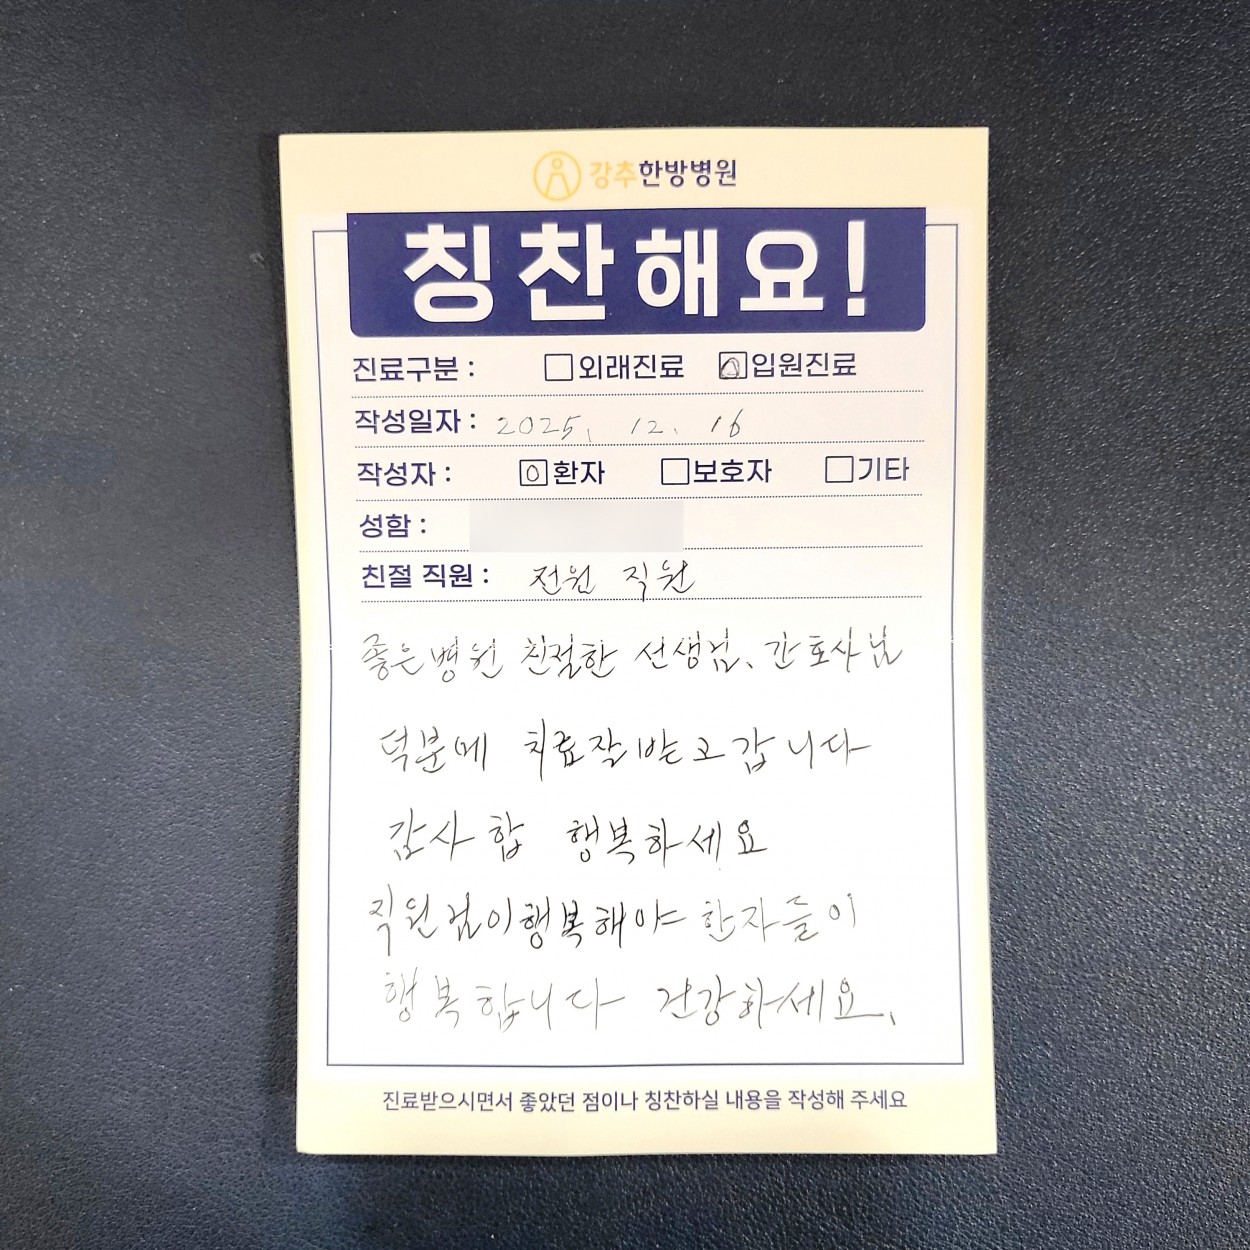 강추한방병원
칭찬해요!
진료구분 : 외래진료 입원진료
작성일자 : 2025. 12. 16
작성자 : 환자 보호자 기타
성함 :
친절 직원 : 전원 직원
좋은병원 친절한 선생님, 간호사님
덕분에 치료잘받고갑니다
감사합 행복하세요
직원님이행복해야 한자들이
행복합니다 건강하세요.
진료받으시면서 좋았던 점이나 칭찬하실 내용을 작성해 주세요